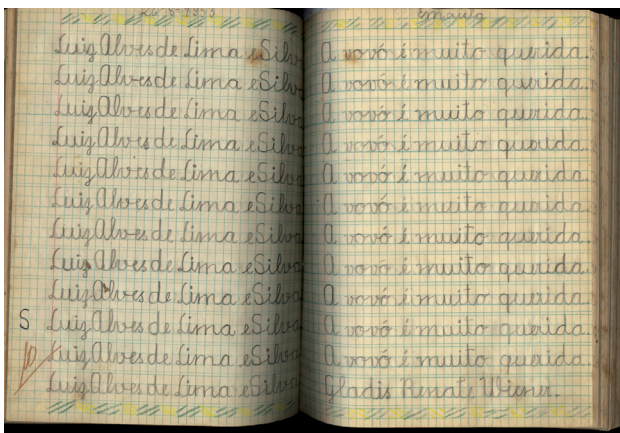 26-8-1953
Luiz Alves de Lima e Silva
Luiz Alves de Lima e Silva
Luiz Alves de Lima e Silva
Luiz Alves de Lima e Silva
Luiz Alves de Lima e Silva
Luiz Alves de Lima e Silva
Luiz Alves de Lima e Silva
Luiz Alves de Lima e Silva
Luiz Alves de Lima e Silva
S Luiz Alves de Lima e Silva
10 Luiz Alves de Lima e Silva
Luiz Alves de Lima e Silva
A vovó é muito querida.
A vovó é muito querida.
A vovó é muito querida.
A vovó é muito querida.
A vovó é muito querida.
A vovó é muito querida.
A vovó é muito querida.
A vovó é muito querida.
A vovó é muito querida.
A vovó é muito querida.
A vovó é muito querida.
Gladis Renate Wiener.